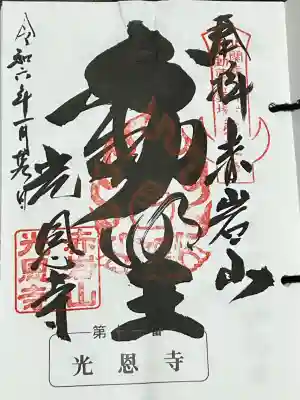 奉拝 赤岩山
不動明王
光恩寺
令和六年一月
赤岩山
光恩寺
光恩寺